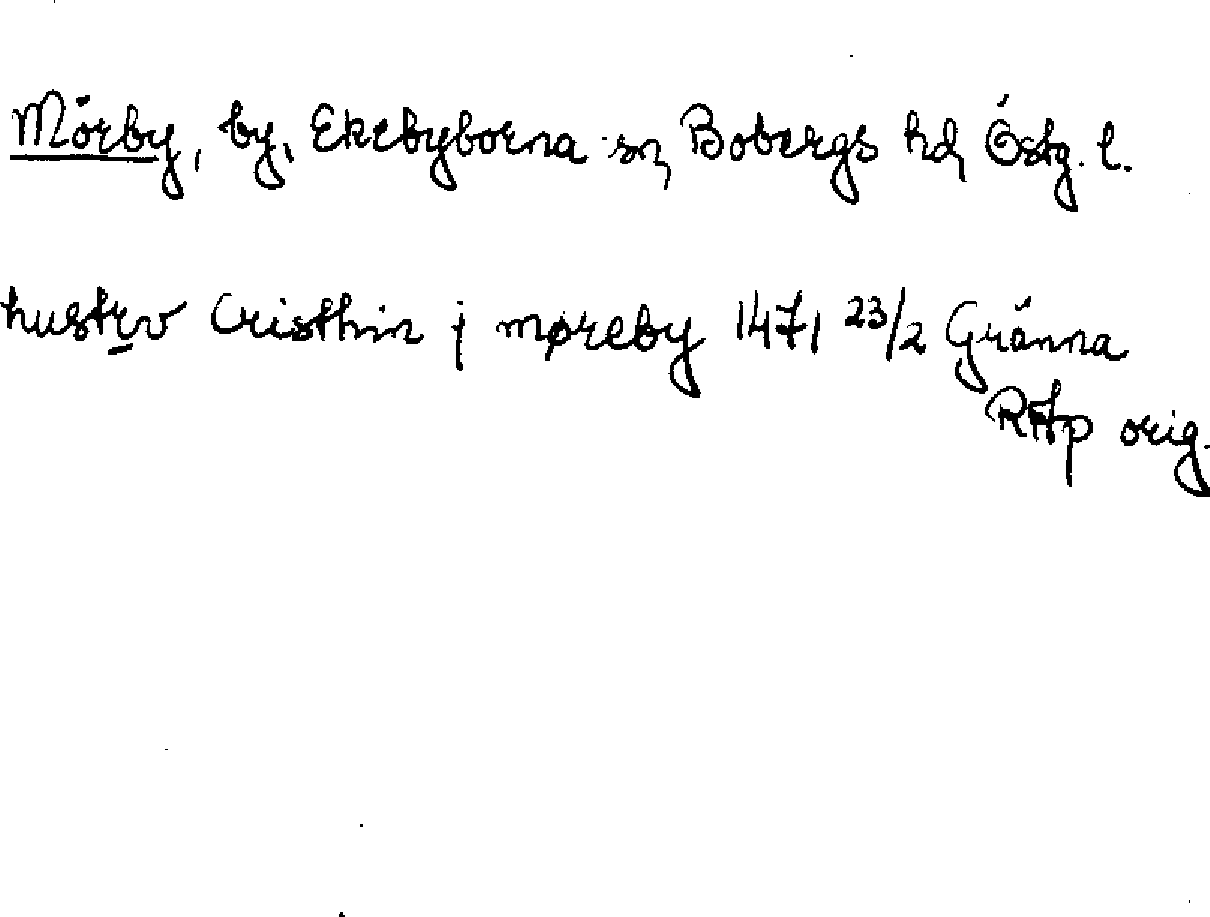 Mörby, by, Ekebyborna sn, Bobergs hd, Östg. l.
hustrv Cristhin j møreby 1471 23/2 Gränna
RAp orig.